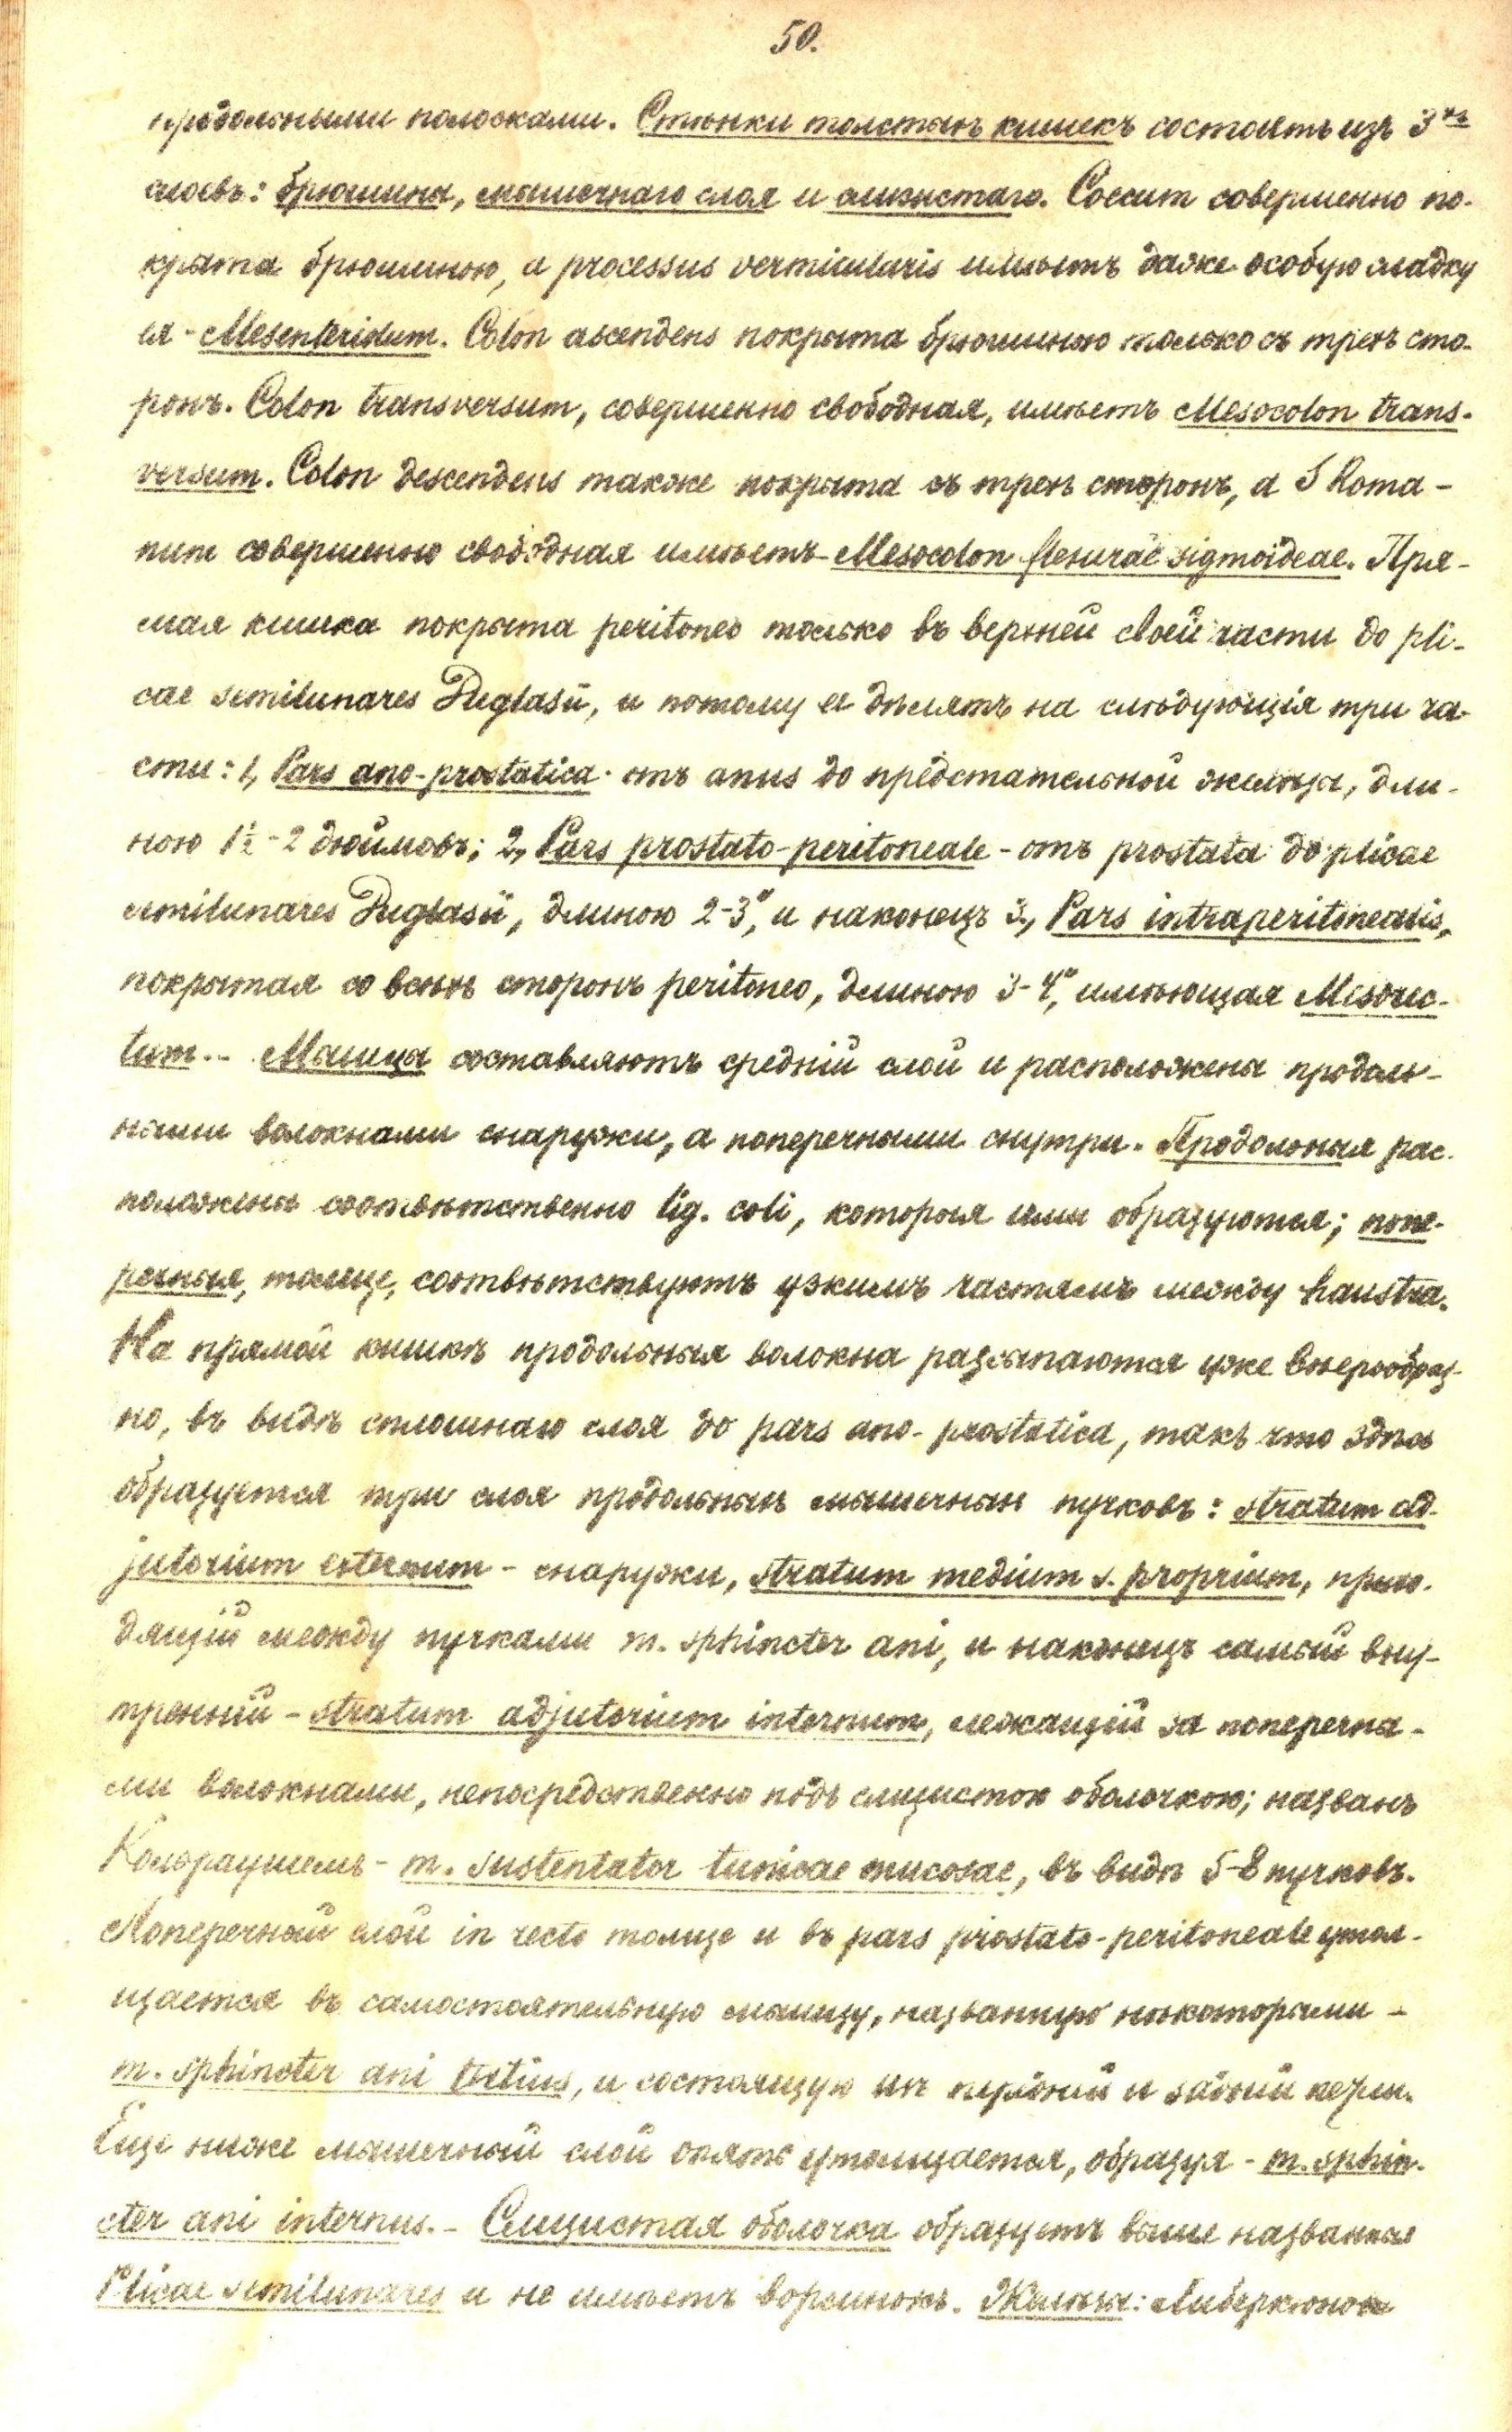 50.
продольными полосками. Стѣнки толстыхъ кишекъ состоятъ изъ 3хъ
слоевъ: брюшины, мышечнаго слоя и слизистаго. Coecum совершенно по-
крыта брюшиною, а processus vermicularis имѣетъ даже особую складку
ея - Mesenteridum. Colon ascendens покрыта брюшиною только съ трехъ сто-
ронъ. Colon transversum, совершенно свободная, имѣетъ Mesocolon trans-
versum. Colon descendens также покрыта съ трехъ сторонъ, а S Roma-
num совершенно свободная имѣетъ - Mesocolon flexurae sigmoideae. Пря-
мая кишка покрыта peritoneo только въ верхней своей части до pli-
cae semilunares Duglasii, и потому ея дѣлятъ на слѣдующія три ча-
сти: 1, Pars ano-prostatica - отъ anus до предстательной железы, дли-
ною 1½-2 дюймовъ; 2, Pars prostato-peritoneale - отъ prostata до plicae
semilunares Duglasii, длиною 2-3", и наконецъ 3, Pars intraperitonealis,
покрытая со всѣхъ сторонъ peritoneo, длиною 3-4", имѣющая Mesorec-
tum.- Мышцы составляютъ средній слой и расположены продоль-
ными волокнами снаружи, а поперечными снутри. Продольныя рас-
положены соотвѣтственно lig. coli, которыя ими образуются; попе-
речныя, толще, соотвѣтствуютъ узкимъ частямъ между haustra.
На прямой кишкѣ продольныя волокна разсыпаются уже вѣерообраз-
но, въ видѣ сплошнаго слоя до pars ano-prostatica, такъ что здѣсь
образуется три слоя продольныхъ мышечныхъ пучковъ: stratum ad-
jutorium externum - снаружи, stratum medium s. proprium, прохо-
дящій между пучками m. sphincter ani, и наконецъ самый вну-
тренній - stratum adjutorium internum, лежащій за поперечны-
ми волокнами, непосредственно подъ слизистою оболочкою; названъ
Кольраушемъ - m. sustentator tunicae mucosae, въ видѣ 5-8 пучковъ.
Поперечный слой in recto толще и въ pars prostato-peritoneale утол-
щается въ самостоятельную мышцу, названную нѣкоторыми -
m. sphincter ani tertius, и состоящую изъ передней и задней петли.
Еще ниже мышечный слой опять утолщается, образуя - m. sphin-
cter ani internus.- Слизистая оболочка образуетъ выше названныя
Plicae semilunares и не имѣетъ ворсинокъ. Железы: Либеркюновы